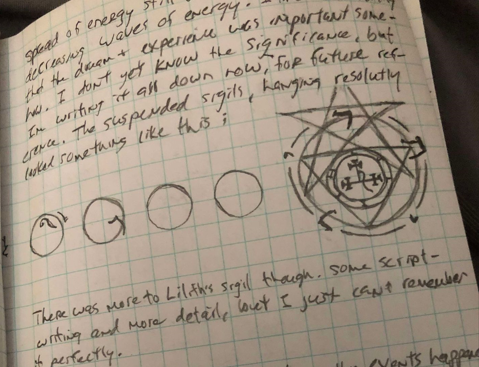 spead of energy still
decreasing waves of energy.
that the dream + experience was important some-
how. I don't yet know the significance, but
I'm writing it all down now, for future ref-
erence. The suspended sigils, hanging resolutly
looked something like this;
There was more to Lilith's sigil though. some script-
writing and more detail, but I just can't remember
it perfectly.
the events happene